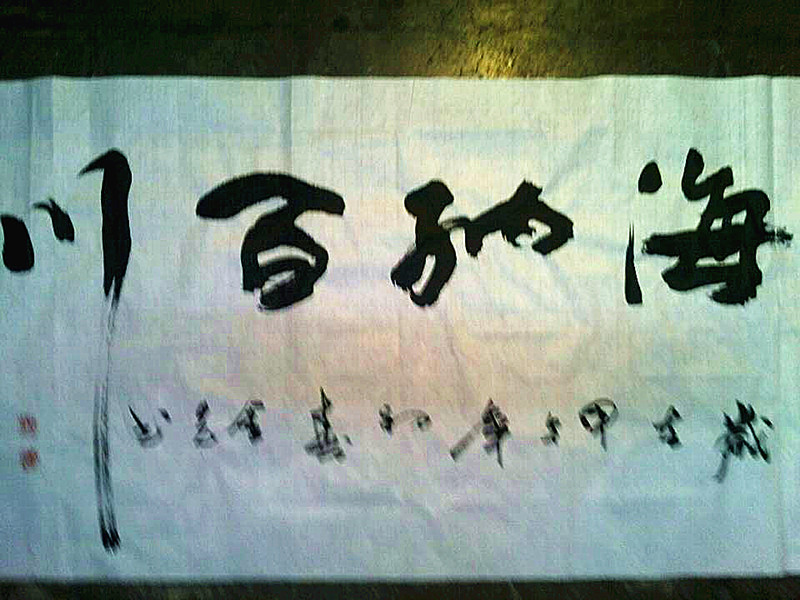 海纳百川
岁在甲午年初春
书